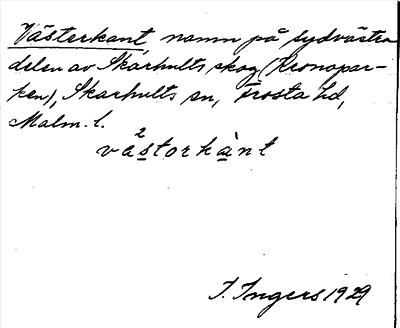 Västerkant, namn på sydvästra
delen av Skarhults skog (Kronopar-
ken), Skarhults sn, Frosta hd,
Malm. l.
va²storkànt
I. Ingers 1929